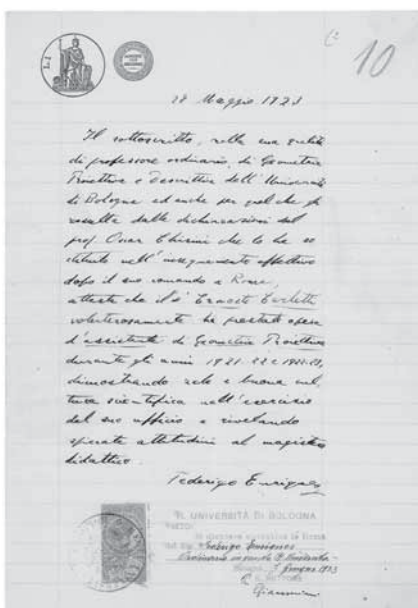 L.1
10
28 Maggio 1923
Il sottoscritto, nella sua qualità
di professore ordinario di Geometria
Proiettiva e Descrittiva dell'Università
di Bologna ed anche per quel che gli
risulta dalle dichiarazioni del
prof. Oscar Chisini che lo ha so
stituito nell'insegnamento effettivo
dopo il suo comando a Roma,
attesta che il Sr Ernesto Carletti
volenterosamente ha prestato opera
d'assistente di Geometria Proiettiva
durante gli anni 1921-22 e 1922-23,
dimostrando zelo e buona cul
tura scientifica nell'esercizio
del suo ufficio e rivelando
spiccate attitudini al magistero
didattico.
Federigo Enriques
R. UNIVERSITÀ DI BOLOGNA
Si dichiara autentica la firma
del Federigo Enriques
Ordinario in questa R. Università
Bologna, 1923
IL RETTORE